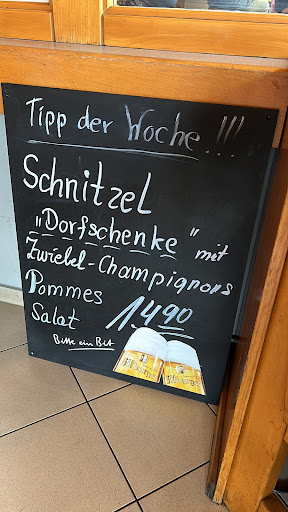 Tipp der Woche!!!
Schnitzel
"Dorfschenke" mit
Zwiebel-Champignons
Pommes
Salat 14.90
Bitte ein Bit